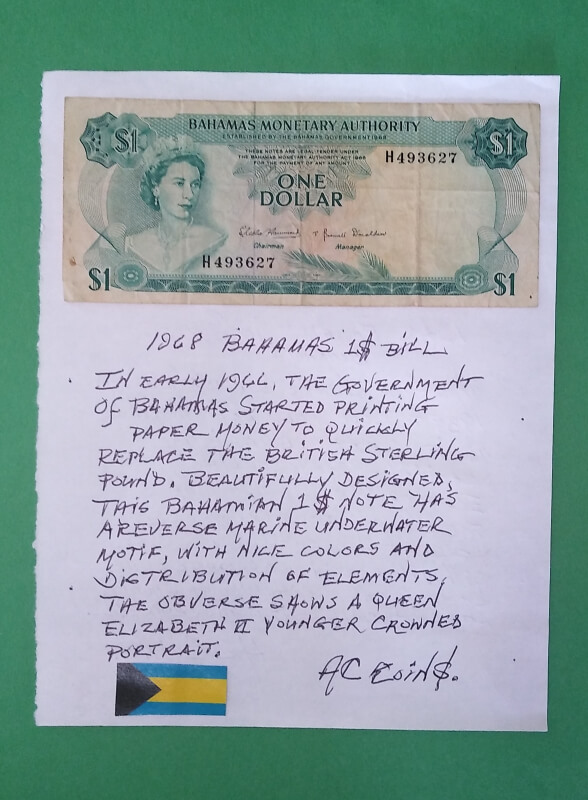 BAHAMAS MONETARY AUTHORITY
ESTABLISHED BY THE BAHAMAS GOVERNMENT 1968
$1
$1
THESE NOTES ARE LEGAL TENDER UNDER
THE BAHAMAS MONETARY AUTHORITY ACT 1968
FOR THE PAYMENT OF ANY AMOUNT
H493627
ONE
DOLLAR
Chairman
Manager
H493627
$1
$1
1968 BAHAMAS 1$ BILL
IN EARLY 1966, THE GOVERNMENT
OF BAHAMAS STARTED PRINTING
PAPER MONEY TO QUICKLY
REPLACE THE BRITISH STERLING
POUND. BEAUTIFULLY DESIGNED,
THIS BAHAMIAN 1$ NOTE HAS
A REVERSE MARINE UNDERWATER
MOTIF, WITH NICE COLORS AND
DISTRIBUTION OF ELEMENTS,
THE OBVERSE SHOWS A QUEEN
ELIZABETH II YOUNGER CROWNED
PORTRAIT.
AC COIN$.